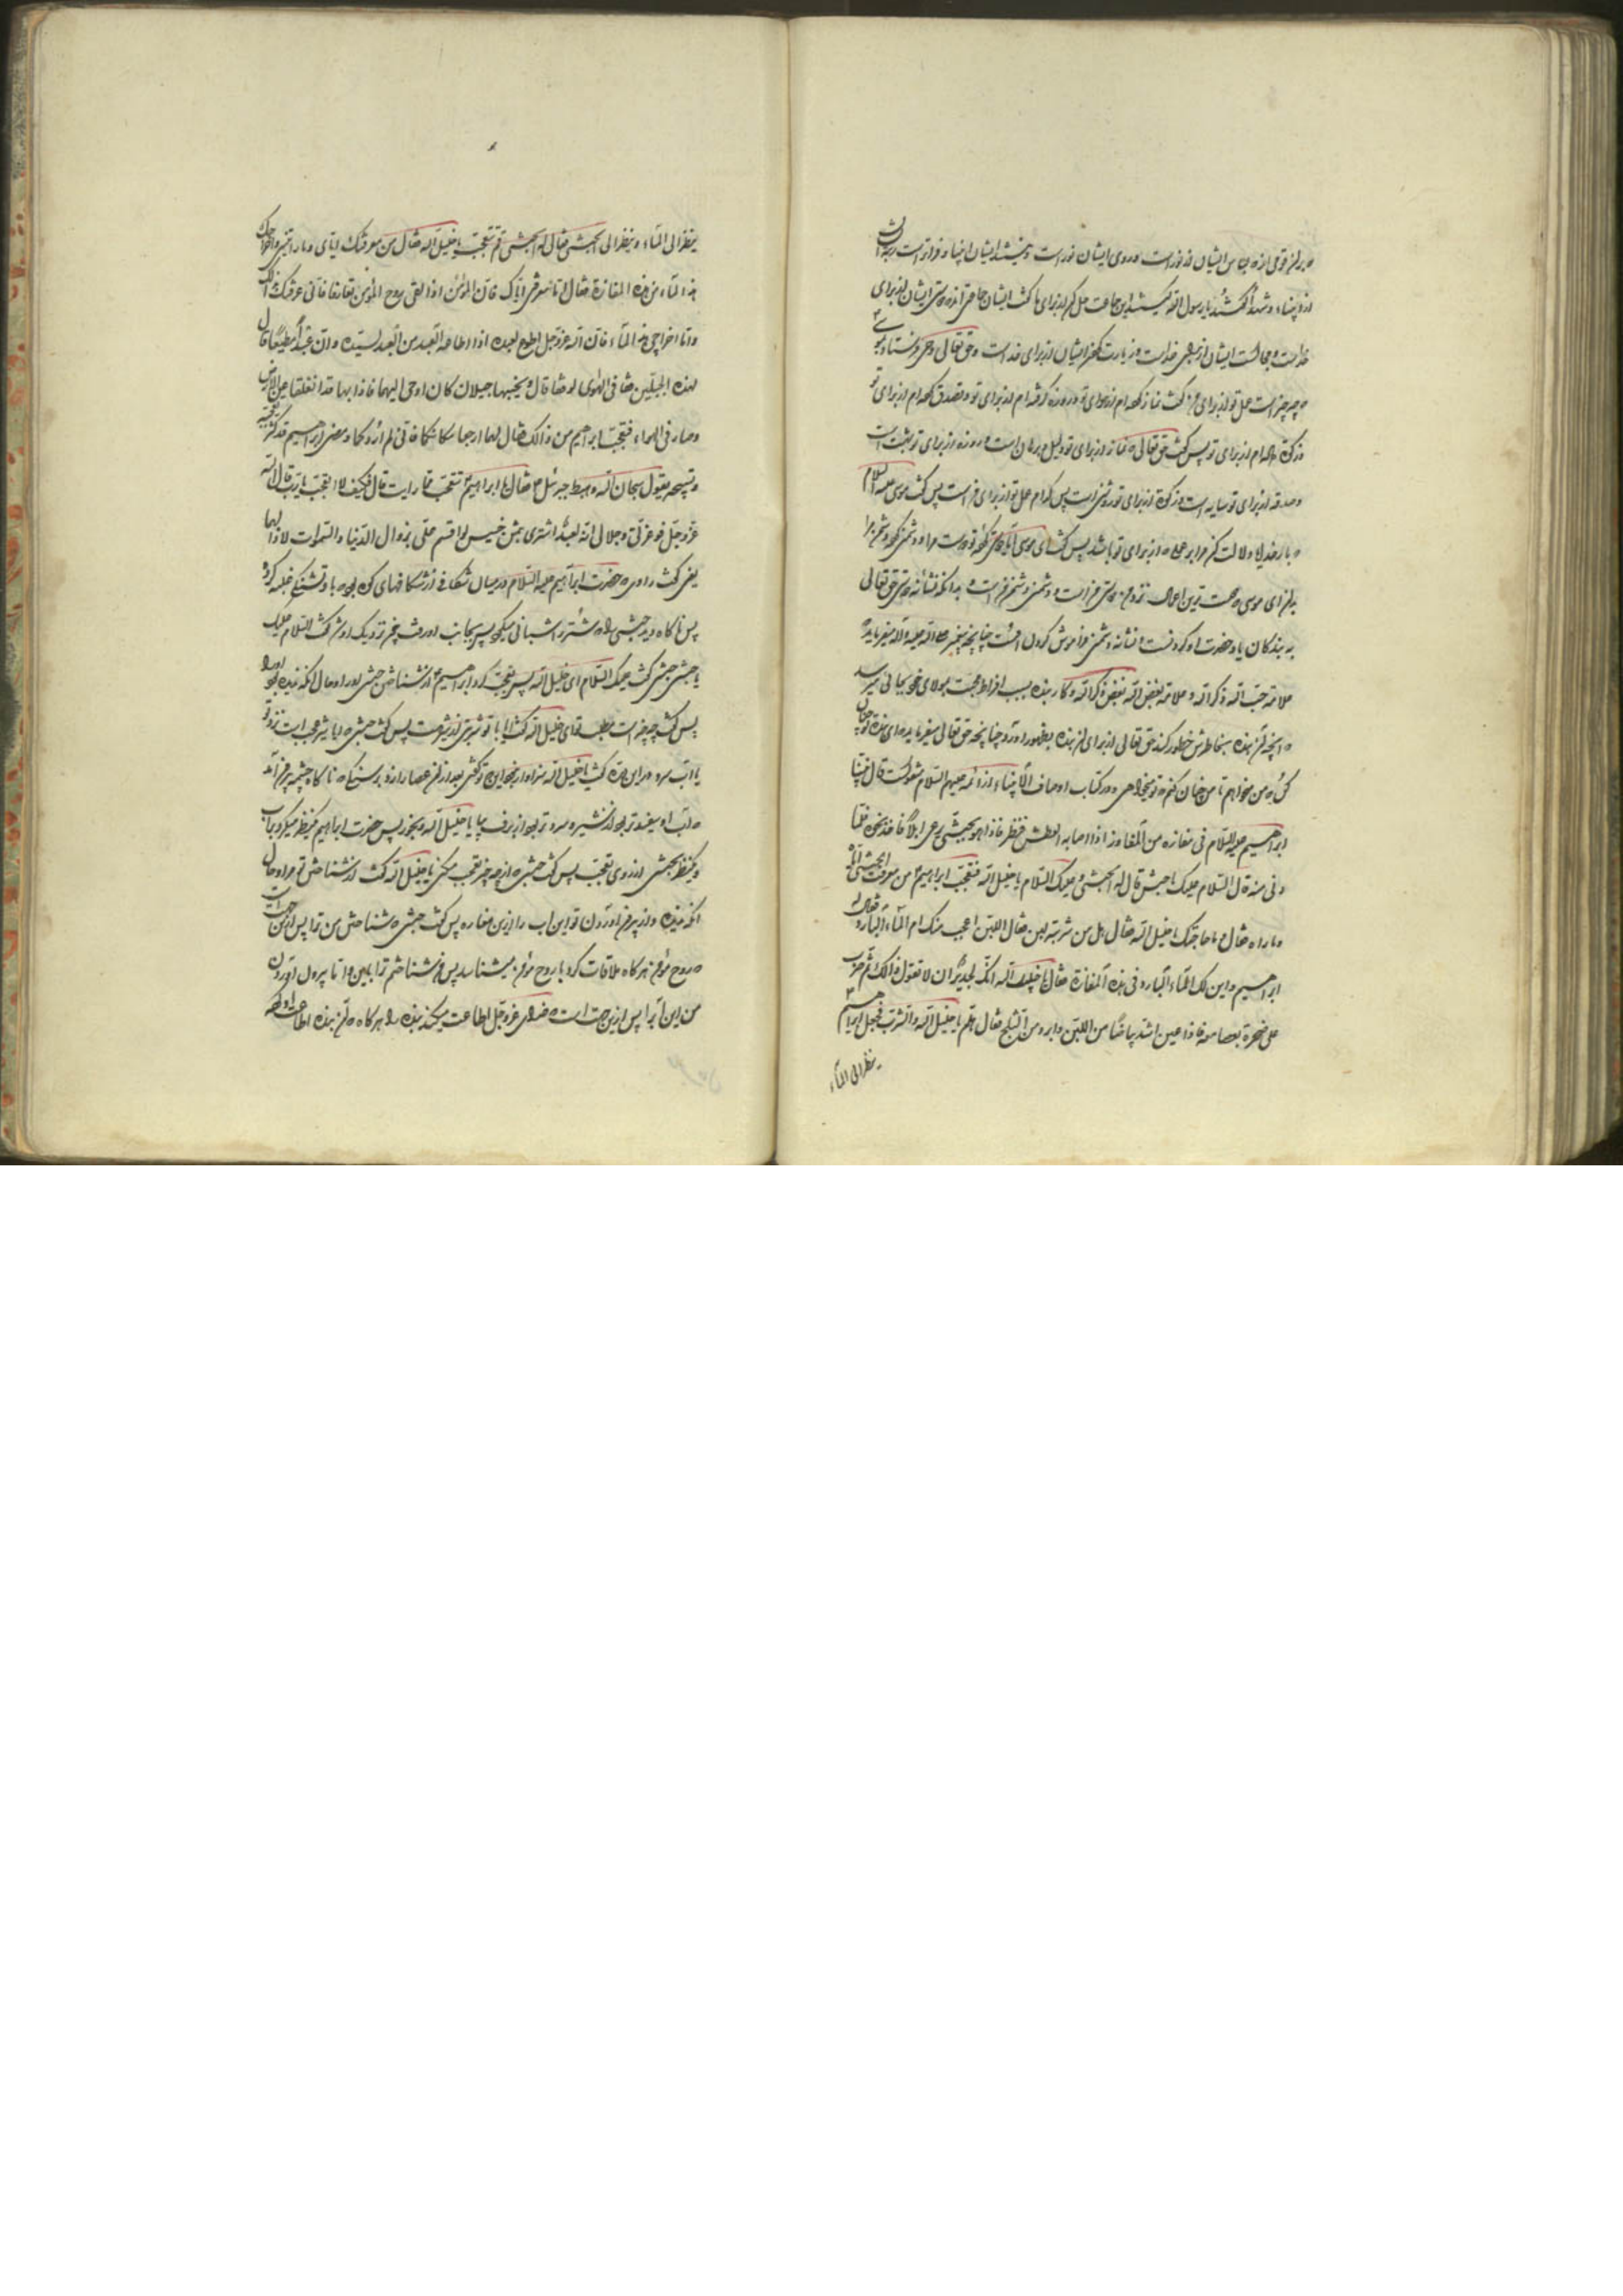 بر آن قومی از نور است و روی ایشان نور است انبیا
انبیاء و شهدا گفتند یا رسول الله این جماعت گفت ایشان جماعتی اند دوستی ایشان از برای
خداست و مجالست ایشان از برای خداست و زیارت ایشان از برای خداست و حق تعالی وحی فرستاد
که چه چیز است عمل تو از برای من گفت نماز کرده‌ام از برای تو و روزه گرفته‌ام از برای تو و تصدق کرده‌ام از برای تو
و زکوة داده‌ام از برای تو پس گفت حق تعالی که نماز از برای تو دلیل و برهان است و روزه از برای تو است
و صدقه از برای تو سایه است و زکوة از برای تو روشنی است پس کدام عمل تو از برای من است پس گفت موسی علیه السلام
که دلالت کن مرا بر عملی که از برای تو باشد پس گفت ای موسی آیا دوستی کرده تو دوست مرا و دشمنی کرده دشمن مرا
بدان ای موسی که ترین اعمال نزد من دوستی من است و دشمنی دشمن من است و بدانکه نشانه دوستی حق تعالی
به بندگان یاد حضرت او کردنست و نشانه دشمنی فراموش کردن است چنانچه پیغمبر صلی الله علیه و آله میفرماید
علامة حب الله ذکر الله و علامة بغض الله بغض ذکر الله و کار بنده بسبب افراط محبت بمولای خود بجائی میرسد
که آنچه آن بنده بخاطرش خطور کند حق تعالی از برای آن بنده بظهور آورد چنانچه حق تعالی میفرماید که ای بنده
کن که من میخواهم تا من چنان کنم که تو میخواهی و در کتاب اوصاف الاتقیاء از ائمه علیهم السلام منقولست قال بینا
ابراهیم علیه السلام فی مفازة من المفاوز اذا اصابه العطش فنظر فاذا هو بحبشی یرعی ابلا فاخذ نحوه فلما
دنی منه قال السلام علیک یا حبشی قال له الحبشی و علیک السلام یا خلیل الله فتعجب ابراهیم من معرفت الحبشی ایاه
و ما رآه فقال ما حاجتک یا خلیل الله فقال هل من شربة لبن فقال اللبن اعجب منک ام الماء البارد فقال له
ابراهیم و این لک الماء البارد فی هذه المفازة فقال یا خلیل الله انک لجدیر ان لا تقول ذالک ثم ضرب
علی صخرة بعصا معه فاذا عین اشد بیاضا من اللبن و ابرد من الثلج فقال هلم یا خلیل الله و اشرب فجعل ابراهیم
ینظر الی الماء
ینظر الی الماء و ینظر الی الحبشی فقال له الحبشی مم تتعجب یا خلیل الله فقال من معرفتک ایای و ما رایتنی و اخراجک
هذا الماء من هذه المفازة فقال اما معرفتی ایاک فان المؤمن اذا لقی روح المؤمن تعارفا فانی عرفتک بذالک
و اما اخراجی هذا الماء فان الله عز و جل اطوع لعبده اذا اطاعه العبد من العبد لسیده و ان عبدا مطیعا قال
لهذه الجبلین قفا فی الهوی لوقفا قال و بجنبهما جبلان کان اومی الیهما فاذا بهما قد انقلعا من الارض
و صار فی الهواء فتعجب ابراهیم من ذالک فقال لهما ارجعا مکانکما فانی لم اردکما و مضی ابراهیم قد کثر تعجبه
و تسبیحه یقول سبحان الله و هبط جبرئیل ع فقال یا ابراهیم تتعجب مما رایت قال فکیف لا اتعجب یا رب قال الله
عز و جل فوعزتی و جلالی انه لعبد اشتری بثمن خسیس لو اقسم علی بزوال الدنیا و السموات لازالهما
یعنی گفت راوی که حضرت ابراهیم علیه السلام در میان شکافی از شکافهای کوه بود با و تشنگی غلبه کرد
پس ناگاه دید حبشی را که شتر اشبانی میکرد پس بجانب او رفت چون نزدیک او شد گفت السلام علیک
یا حبشی حبشی گفت علیک السلام ای خلیل الله پس تعجب کرد ابراهیم از شناختن حبشی او را و حال آنکه ندیده بود او را
پس گفت چه چیز است مطلب تو ای خلیل الله گفت آیا با تو شربتی از شیر هست پس گفت حبشی که آیا شیر عجب است نزد تو
یا آب سرد در این دره گفت یا خلیل الله سزاوار نیست این که تو گفتی بعد از آن عصا را زد بر سنگی که ناگاه چشمه بیرون آمد
که آب او سفیدتر بود از شیر و سردتر بود از برف بیا یا خلیل الله و بخور پس حضرت ابراهیم نظر میکرد بآب
و نظر بحبشی از روی تعجب پس گفت حبشی که از چه چیز تعجب میکنی یا خلیل الله گفت از شناختن تو مرا و حال
آنکه ندیده و از بیرون آوردن تو این آب را از این مغاره پس گفت حبشی که شناختن من ترا پس از این جهت است
که روح مؤمن هرگاه ملاقات کرد با روح مؤمن میشناسد پس من شناختم ترا باین و اما بیرون آوردن
من این آب را پس از این جهت است که خدای عز و جل اطاعت میکند بنده را هرگاه که آن بنده اطاعت او کند